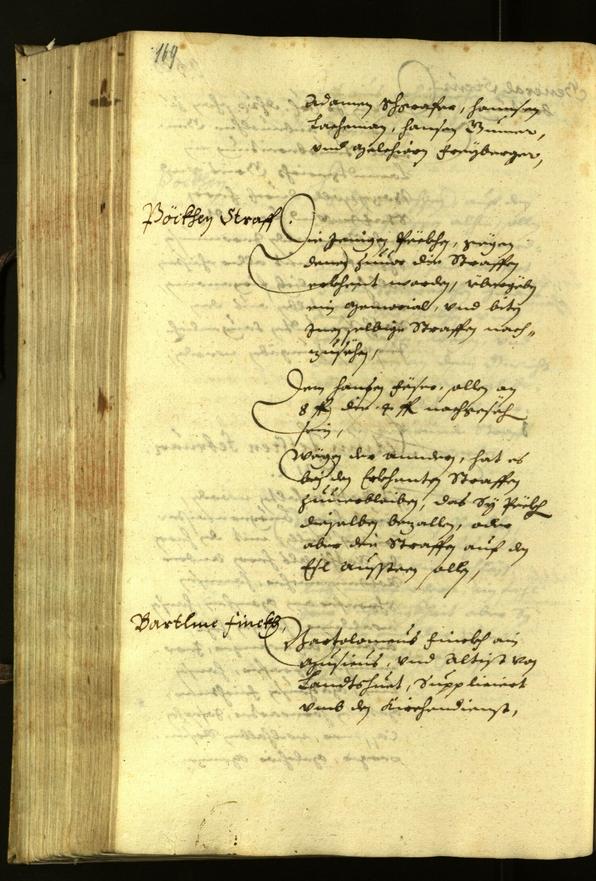 169
Adamen Schrafer, Hannsen
Lacheman, Hansen
und Melchiorn Freyberger,
Pöckhen Straff.
Die Jenigen Pöckhen, wegen
denen zuuor die Straffen
erkhent worden, übergeben
ein Memorial, und biten
Jnen selbige Straffen nach-
zusehen,
Dem Hansen allen an
8 ff die 4 ff nachgesechen
sein,
Wegen der anndern, hat es
bey den Erkhenten Straffen
zuuerbleiben, das Sy Pöckhen
dieselben bezallen, oder
aber die Straffen auf den
Esl aussteen sollen,
Bartlme Finckh,
Bartolomeus Finckh ein
Musicus, und Altist von
Landtshuet, Suppliciert
umb den Kirchendienst,